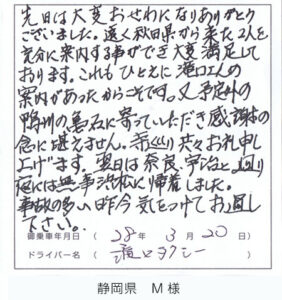 先日は大変おせわになりありがとう
ございました。遠く秋田県から来た2人を
充分に案内する事ができ大変満足して
おります。これもひとえに滝口さんの
案内があったからこそです。又予定外の
鴨川の墓石に寄っていただき感謝の
念に堪えません。寺巡り共々お礼申し
上げます。翌日は奈良、宇治と
夜には無事浜松に帰着しました。
事故の多い昨今気をつけてお過し
下さい。
御乗車年月日 ( 28年 3月 20日 )
ドライバー名 ( 滝口タクシー )
静岡県 M様